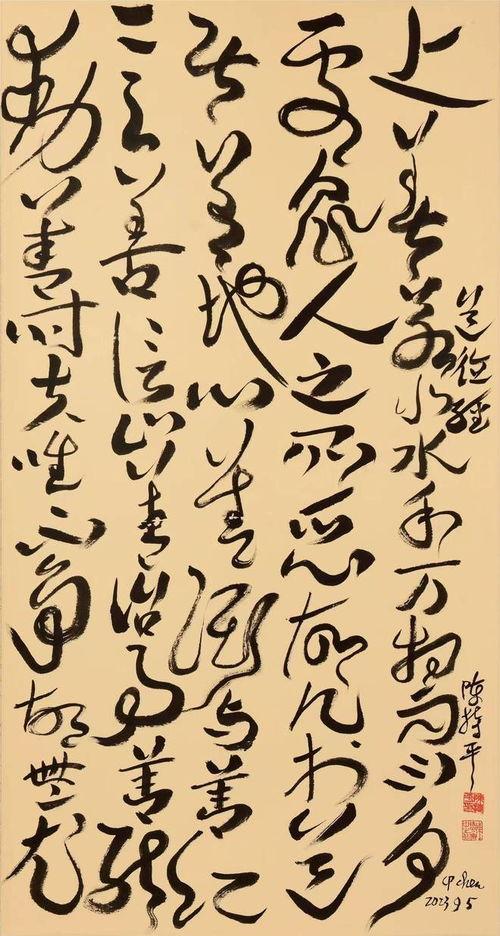 上善若水水利万物而不争
处众人之所恶故几於道
居善地心善渊与善仁
言善信正善治事善能
動善时夫唯不争故無尤
道德经
陈持平
CP Chen
2023 9 5